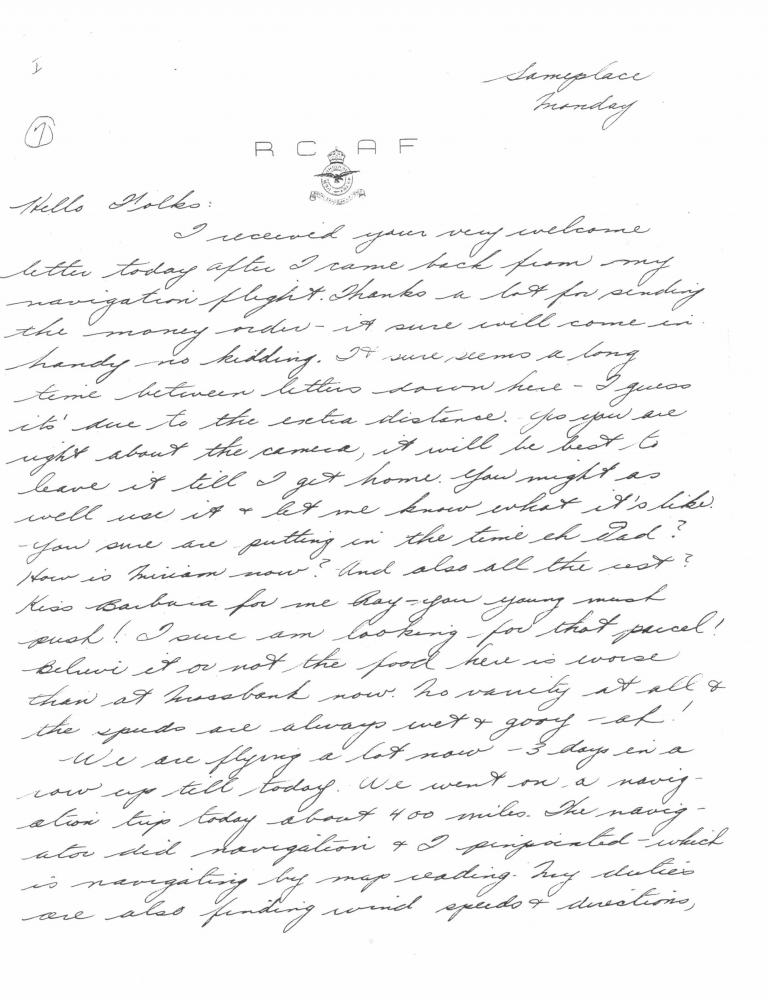 I
Sameplace
Monday
7
R C A F
Hello Folks:
I received your very welcome
letter today after I came back from my
navigation flight. Thanks a lot for sending
the money order - it sure will come in
handy no kidding. It sure seems a long
time between letters down here - I guess
its' due to the extra distance. Yes you are
right about the camera, it will be best to
leave it till I get home. You might as
well use it & let me know what it's like.
- You sure are putting in the time eh Dad?
How is Miriam now? And also all the rest?
Kiss Barbara for me Ray - you young mush
push! I sure am looking for that parcel!
Believe it or not the food here is worse
than at Mossbank now. No variety at all &
the spuds are always wet & gooy -
We are flying a lot now - 3 days in a
row up till today. We went on a navig-
ation trip today about 400 miles. The navig-
ator did navigation & I pinpointed - which
is navigating by map reading. My duties
are also finding wind speeds & directions,